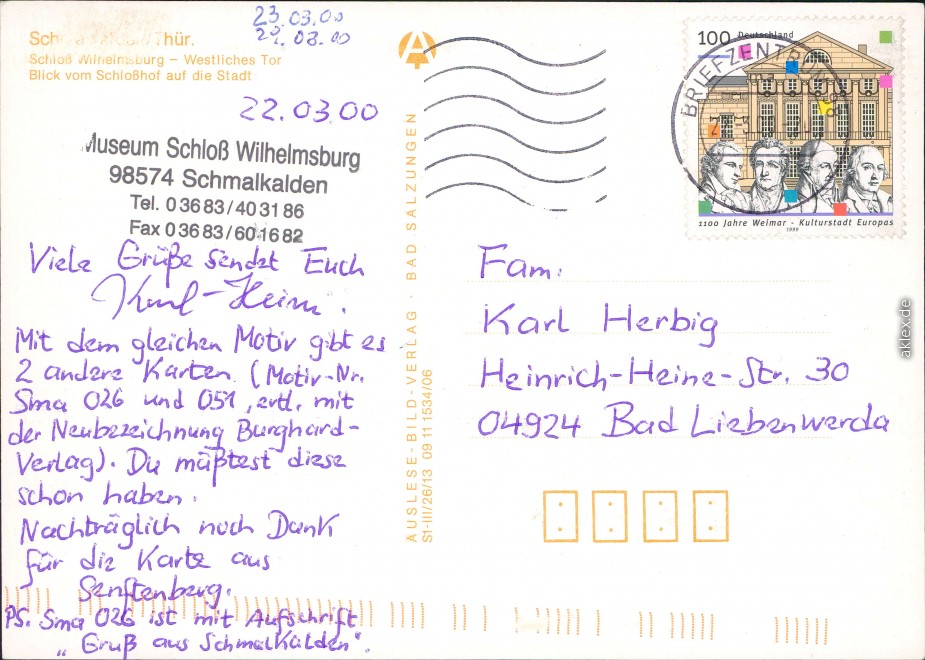 23.03.00
29.03.00
Thür.
Schloß Wilhelmsburg – Westliches Tor
Blick vom Schloßhof auf die Stadt
22.03.00
Museum Schloß Wilhelmsburg
98574 Schmalkalden
Tel. 0 36 83 / 40 31 86
Fax 0 36 83 / 60 16 82
Viele Grüße sendet Euch
Karl-Heinz.
Mit dem gleichen Motiv gibt es
2 andere Karten (Motiv-Nr.
Sma 026 und 051, evtl. mit
der Neubezeichnung Burghard-
Verlag). Du müßtest diese
schon haben.
Nachträglich noch Dank
für die Karte aus
Senftenberg.
PS. Sma 026 ist mit Aufschrift
„Gruß aus Schmalkalden".
AUSLESE-BILD-VERLAG · BAD SALZUNGEN
S1-III/26/13 09 11 1534/06
A
100 Deutschland
BRIEFZENTRUM
1100 Jahre Weimar - Kulturstadt Europas
1999
Fam.
Karl Herbig
Heinrich-Heine-Str. 30
04924 Bad Liebenwerda
aklex.de